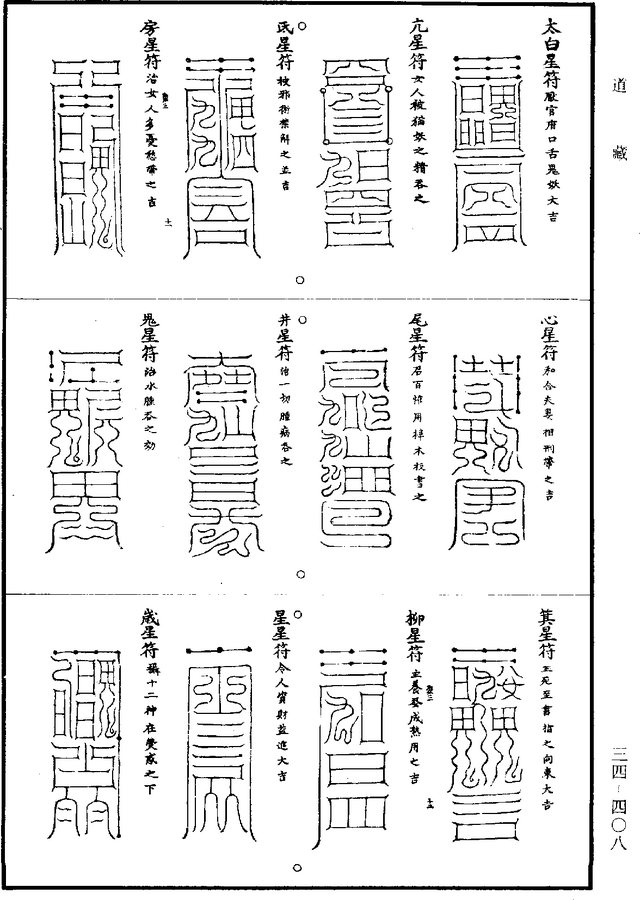 道藏
太白星符 厭官府口舌鬼妖大吉
亢星符 女人被猫妖之精吞之
氐星符 枚邪術禁解之並吉
房星符 治女人多憂愁帶之吉
十一
心星符 和合夫妻相刑帶之吉
尾星符 召百怪用梓木板書之
井星符 治一切腫病吞之
鬼星符 治水腫吞之効
箕星符 主死至書指之向東大吉
柳星符 主養蚕成熟用之吉
十二
星星符 令人資財益進大吉
歲星符 攝十二神在
家之下
三四-四〇八